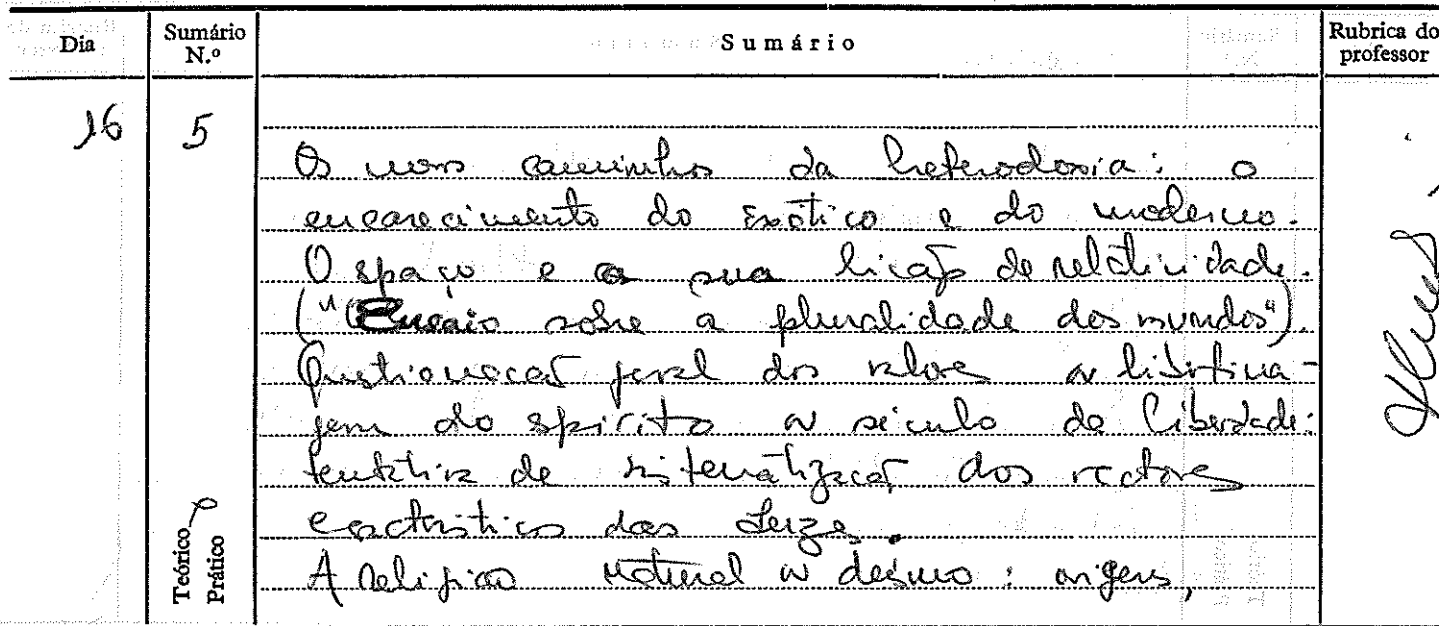 Dia
Sumário N.º
Sumário
Rubrica do professor
16
5
Os novos caminhos da heterodoxia: o
encarecimento do exótico e do moderno.
O espaço e a sua lição de relatividade.
("Ensaio sobre a pluralidade dos mundos").
Questionação geral dos valores a libertina-
gem do espírito século da Liberdade:
tentativa de sistematização dos vectores
caracteristicos das Luzes.
A religião natural deismo: origens,
Teórico
Prático